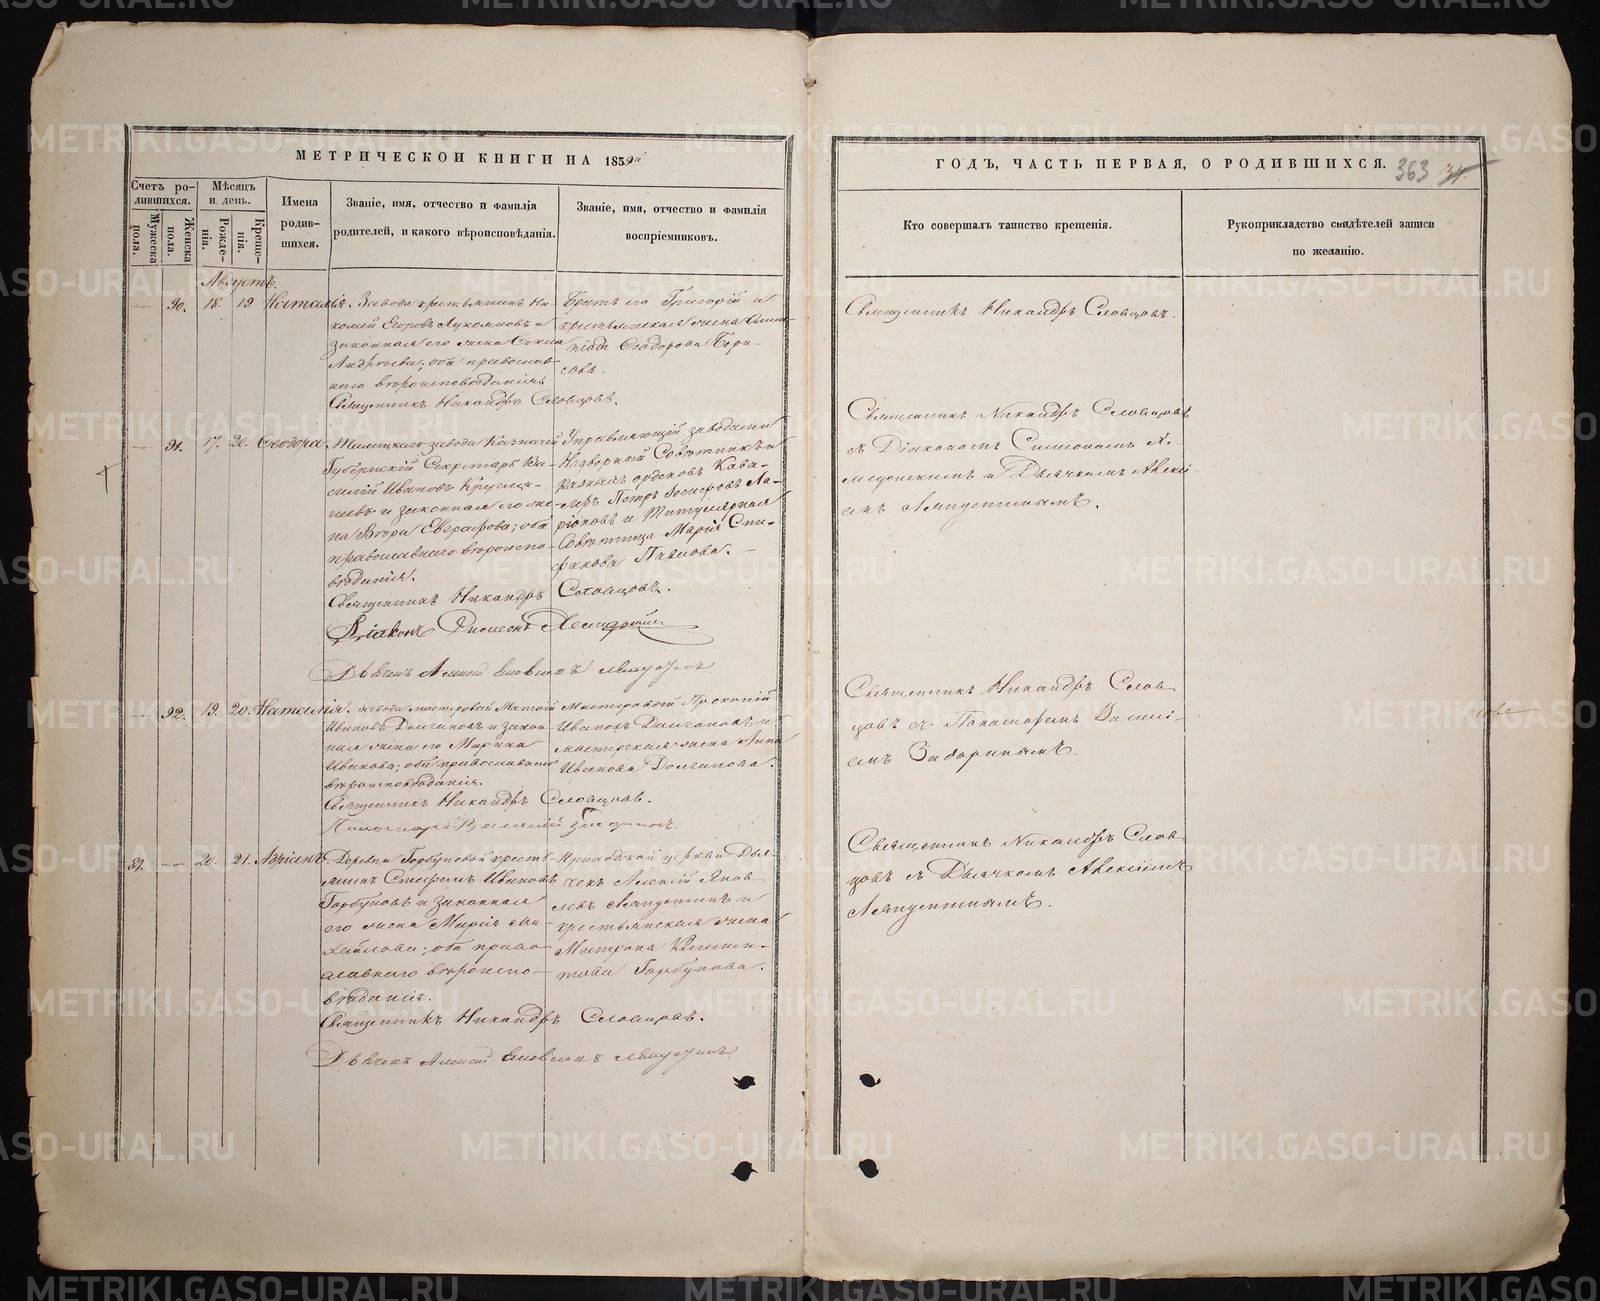 МЕТРИЧЕСКОЙ КНИГИ НА 1859й
ГОДЪ, ЧАСТЬ ПЕРВАЯ, О РОДИВШИХСЯ.
363
Счетъ ро-
дившихся.
Мужеска
пола.
Женска
пола.
Мѣсяцъ
и день.
Рожде-
нія.
Креще-
нія.
Имена
родив-
шихся.
Званіе, имя, отчество и фамилія
родителей, и какого вѣроисповѣданія.
Званіе, имя, отчество и фамилія
воспріемниковъ.
Кто совершалъ таинство крещенія.
Рукоприкладство свидѣтелей записи
по желанію.
Августъ.
90. 18. 19 Наталія.
Завода крестьянинъ Ни-
Егоровъ и
законная его жена
Андреева; оба православ-
наго вѣроисповѣданія
Священникъ Никандръ Словцовъ.
Братъ его Григорій и
крестьянская жена
Ѳеодорова Бори-
сова.
Священникъ Никандръ Словцовъ.
91. 17. 20. Ѳеодора.
Талицкаго завода Казначей
Губернскій Секретарь Ва-
силій Ивановъ
и законная его же-
на Вѣра Евграфова; оба
православнаго вѣроиспо-
вѣданія.
Священникъ Никандръ Словцовъ.
Діаконъ Симеонъ
Дьячекъ Алексій Яковлевъ Лапустинъ
Управляющій заводами
Надворный Совѣтникъ и
разныхъ орденовъ Кава-
леръ Петръ Іосифовъ Ла-
ріоновъ и Титулярная
Совѣтница Марія Спи-
Павлова.
Священникъ Никандръ Словцовъ
съ Діакономъ Симеономъ
и Дьячкомъ Алексі-
емъ Лапустинымъ.
92. 19. 20. Наталія.
завода мастеровый Матвѣй
Ивановъ Долгановъ и закон-
ная жена его Марина
Иванова; оба православнаго
вѣроисповѣданія.
Священникъ Никандръ Словцовъ.
Пономарь Василій
Мастеровый Прокопій
Ивановъ Долгановъ и
мастерская жена Анна
Иванова Долганова.
Священникъ Никандръ Слов-
цовъ съ Пономаремъ Василі-
емъ
89. 20. 21. Адріанъ.
Деревни Горбуновой кресть-
янинъ Стефанъ Ивановъ
Горбуновъ и законная
его жена Марія Ми-
хайлова; оба право-
славнаго вѣроиспо-
вѣданія.
Священникъ Никандръ Словцовъ.
Дьячекъ Алексій Яковлевъ Лапустинъ
Приходской церкви Дья-
чекъ Алексій Яков-
левъ Лапустинъ и
крестьянская жена
Матрона
Горбунова.
Священникъ Никандръ Слов-
цовъ съ Дьячкомъ Алексіемъ
Лапустинымъ.
METRIKI.GASO-URAL.RU